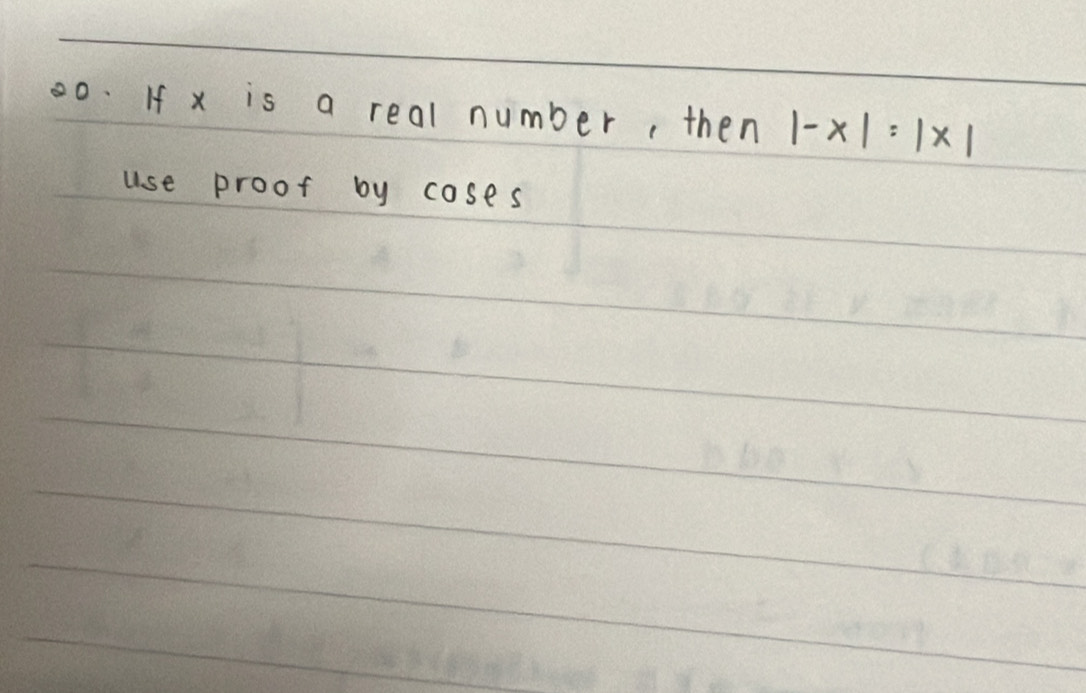 20. If x is a real number, then |-x| = |x|
use proof by cases